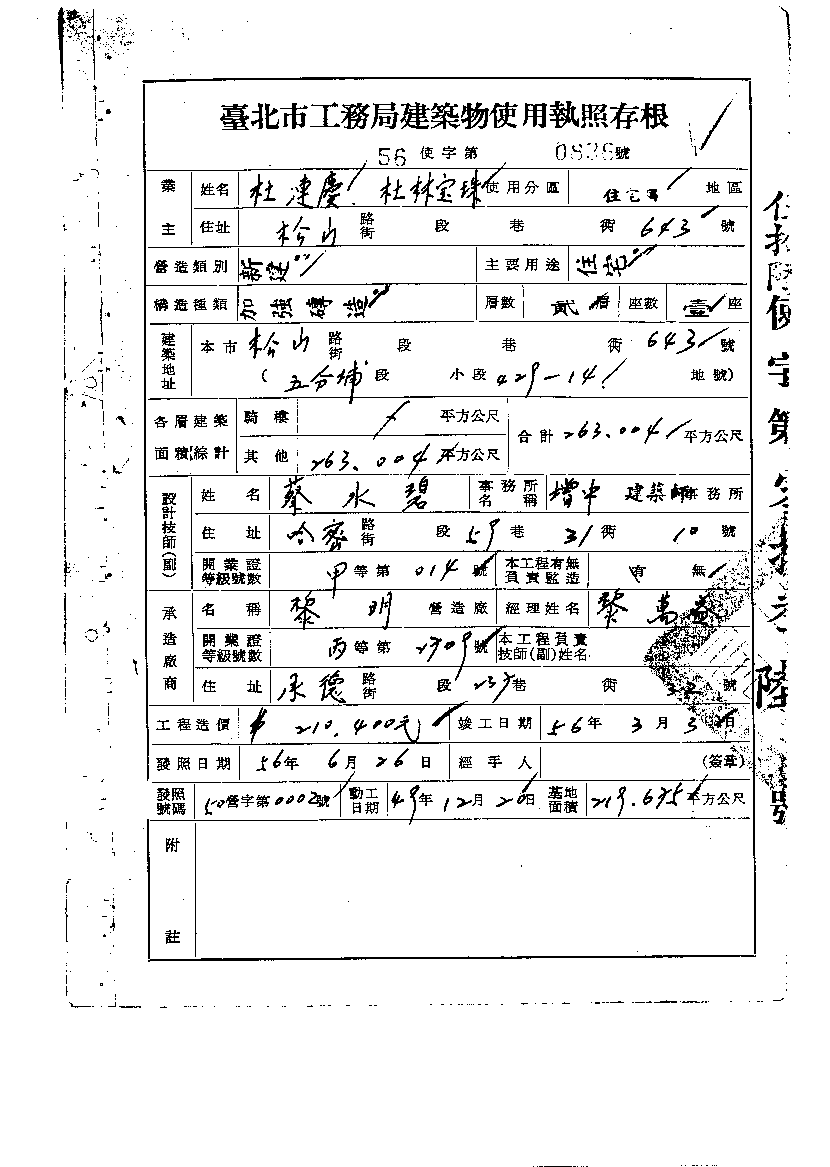 臺北市工務局建築物使用執照存根
56 使字第 0836號
業主 姓名 杜連慶 杜林宝珠 使用分區 住宅區 地區
住址 松山 路街 段 巷 衖 643 號
營造類別 新建 主要用途 住宅
構造種類 加強磚造 層數 貳層 座數 壹 座
建築地址 本市 松山 路街 段 巷 衖 643 號
(五分埔 段 小段 429-14 地號)
各層建築面積綜計 騎樓 平方公尺 合計 263.004 平方公尺
其他 263.004 平方公尺
設計技師(副) 姓名 蔡水碧 事務所名稱 增中 建築師事務所
住址 哈密 路街 段 59 巷 31 衖 10 號
開業證等級號數 甲 等第 014 號 本工程有無負責監造 有 無
承造廠商 名稱 黎明 營造廠 經理姓名 黎萬益
開業證等級號數 丙 等第 2709 號 本工程負責技師(副)姓名
住址 承德 路街 段 237 巷 衖 32 號
工程造價 $210,400元 竣工日期 56年 3月 3 日
發照日期 56年 6月 26日 經手人 (簽章)
發照號碼 50營字第0002號 動工日期 49年 12月 20日 基地面積 219.675 平方公尺
附註